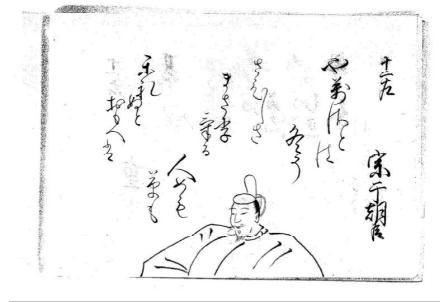 十二左
宗于朝臣
や万さとは
冬そ
さひしさ
まさ李
気る
人めも
草も
かれぬと
おもへは